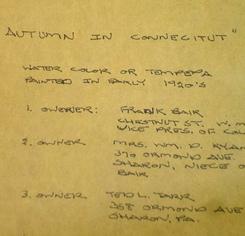 AUTUMN IN CONNECITUT"
WATER COLOR OR TEMPERA
PAINTED IN EARLY 1920'S
1. OWENER: FRANK BAIR
CHESTNUT ST. W. M
VICE PRES. OF COL
2. OWNER MRS. WM. D. RYAN
370 ORMOND AVE.
SHARON, NIECE O
BAIR
3. OWNER TED L. TARR
358 ORMOND AVE
SHARON, PA.